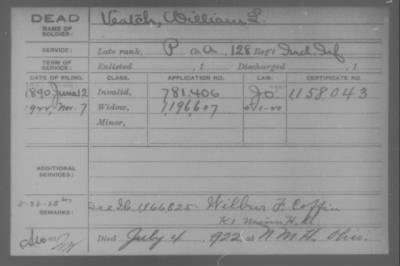 DEAD
NAME OF SOLDIER:
Veatch, William L.
SERVICE:
Late rank, P Co A, 128 Reg't Ind. Inf
TERM OF SERVICE:
Enlisted , 1 Discharged , 1
DATE OF FILING. CLASS. APPLICATION NO. LAW. CERTIFICATE NO.
1890, June 12 Invalid, 781.406 1158,043
1922, Nov. 7 Widow, 1196607
Minor,
ADDITIONAL SERVICES:
REMARKS:
1166825 Wilbur F. Coffin
Died July 4, 1922 at N.M.H.